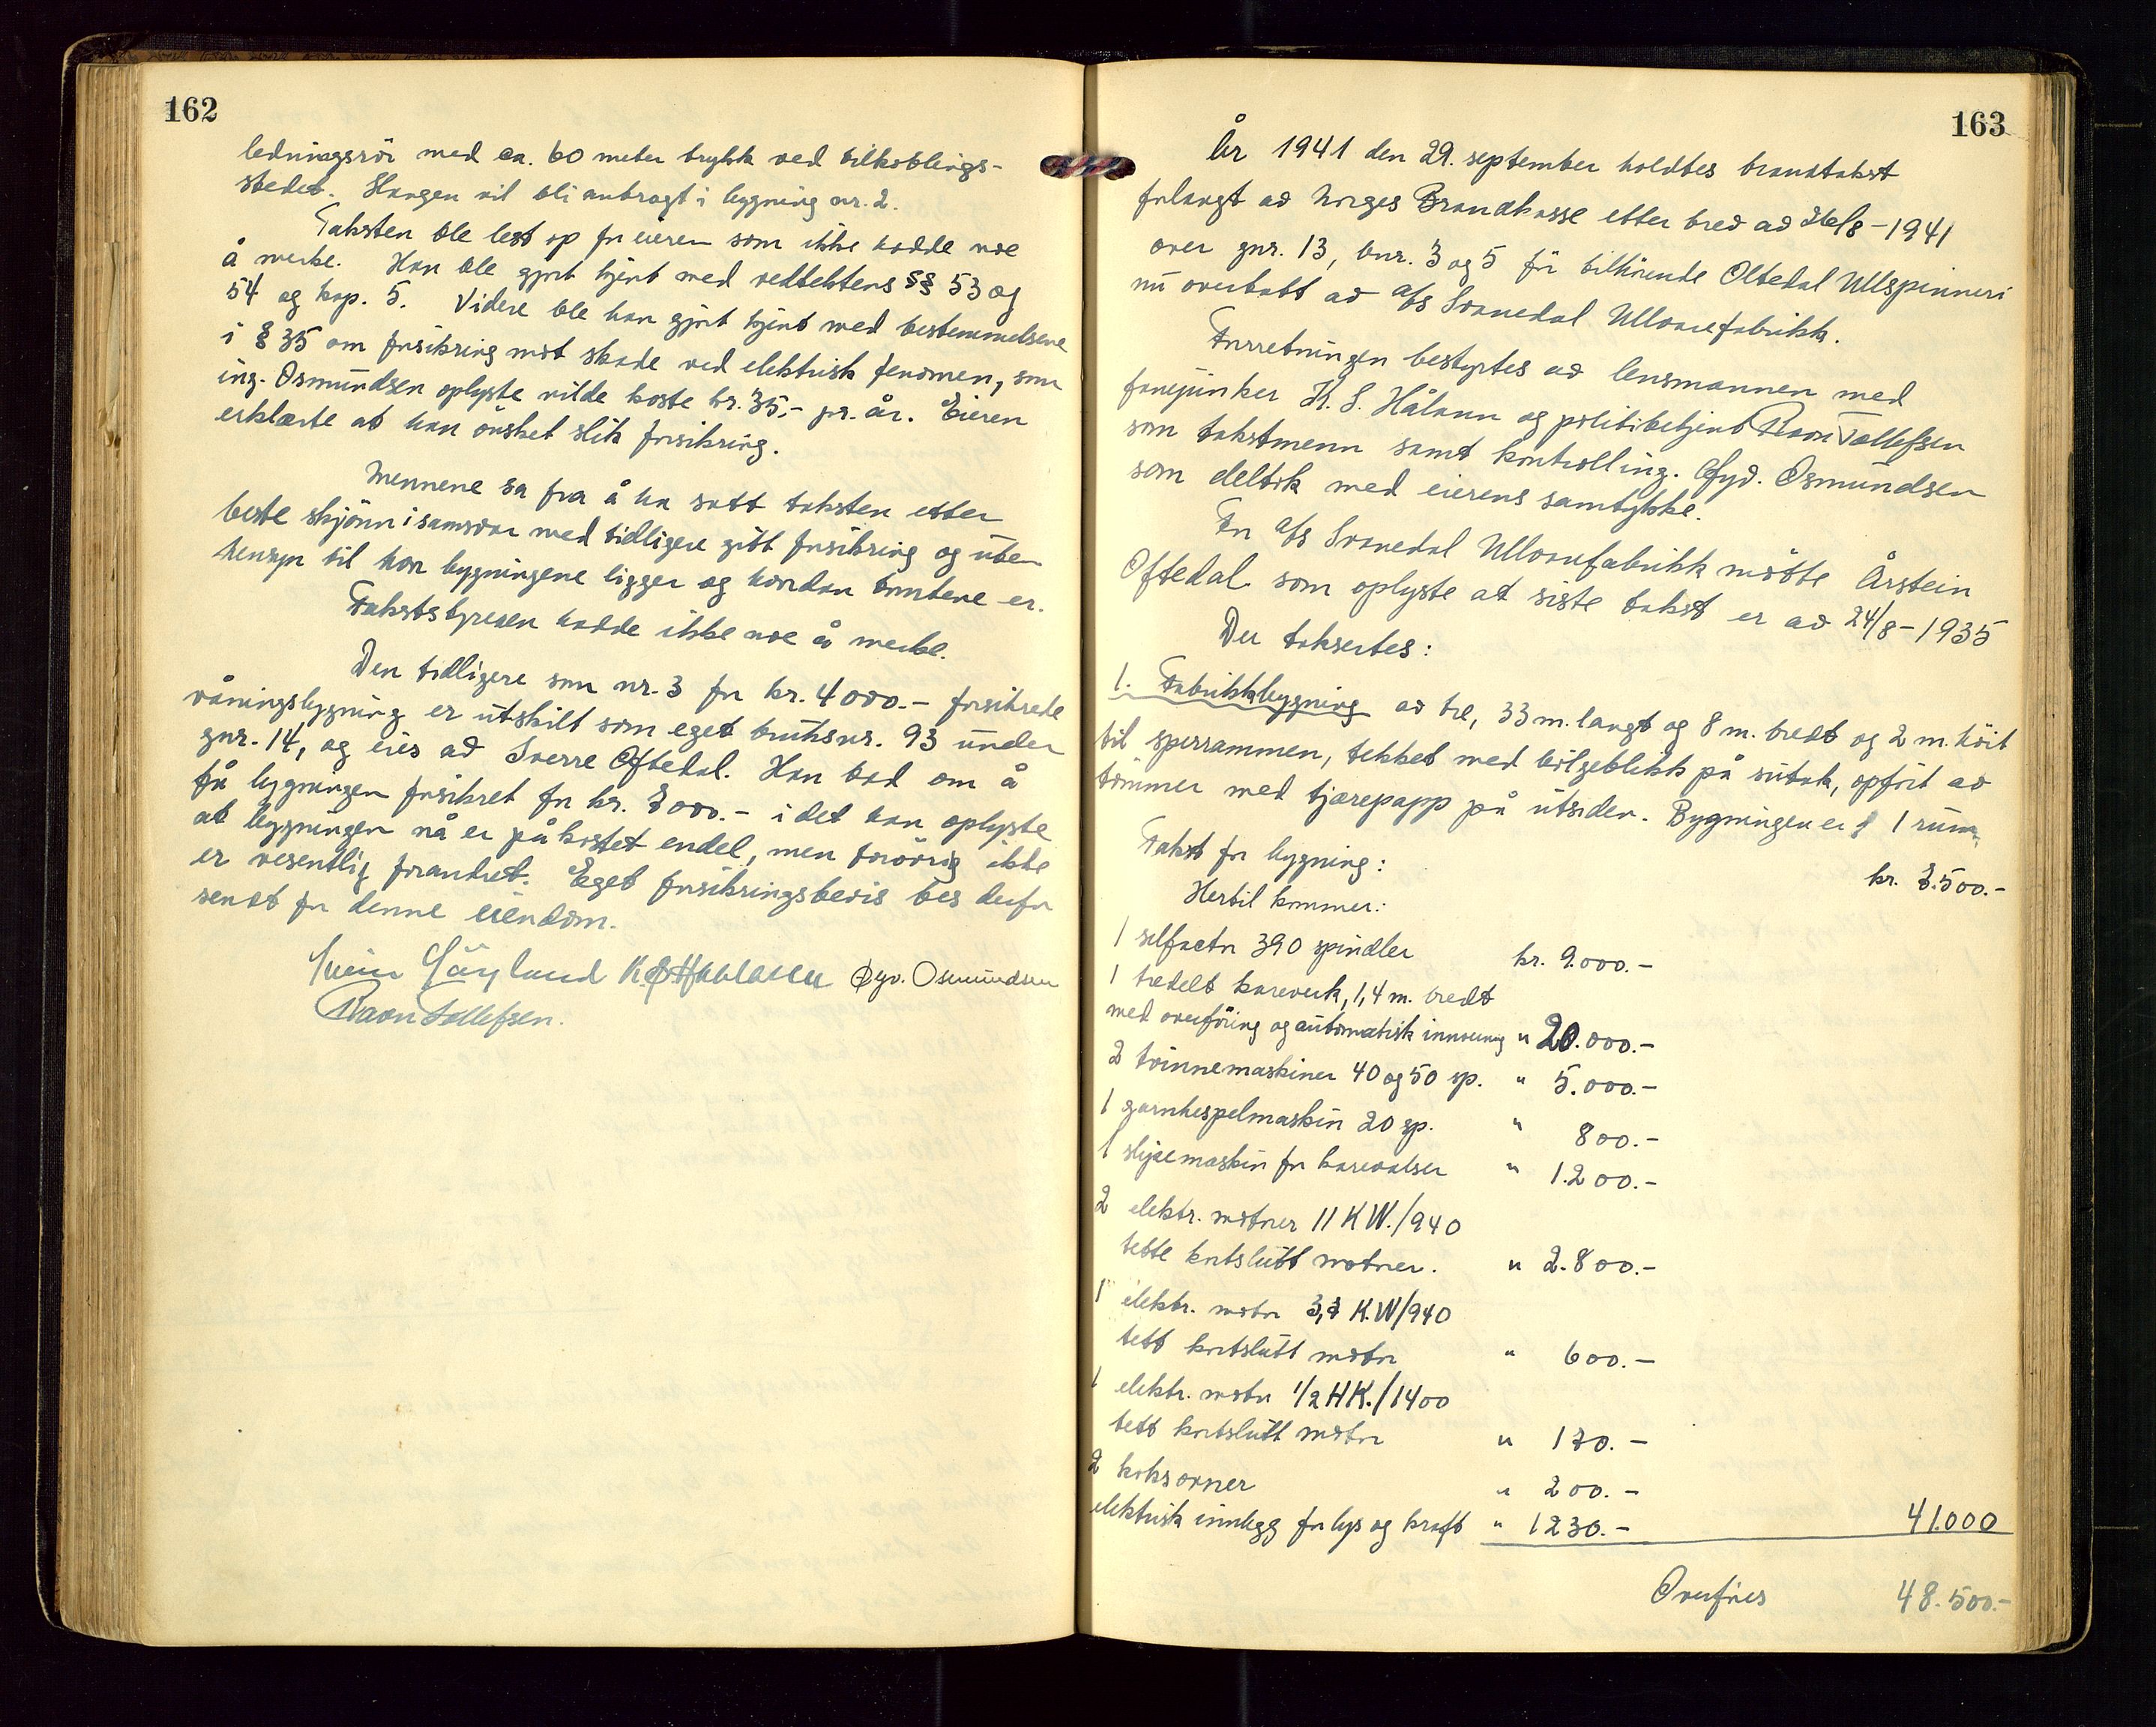 162
ledningsrör med ca. 60 meter trykk ved tilkoblings-
stedet. Slangen vil bli anbragt i bygning nr. 2.
Taksten ble lest op for eieren som ikke hadde noe
å merke. Han ble gjort kjent med vedtektens §§ 53 og
54 og kap. 5. Videre ble han gjort kjent med bestemmelsene
i § 35 om forsikring mot skade ved elektrisk fenomen, som
ing. Osmundsen oplyste vilde koste kr. 35.- pr. år. Eieren
erklærte at han ønsket slik forsikring.
Mennene sa fra å ha satt taksten etter
beste skjönn i samsvar med tidligere gitt forsikring og uten
hensyn til hvor bygningene ligger og hvordan tomtene er.
Takstbyreren hadde ikke noe å merke.
Den tidligere som nr. 3 for kr. 4000.- forsikrede
våningsbygning er utskilt som eget bruksnr. 93 under
gnr. 14, og eies av Sverre Oftedal. Han bad om å
få bygningen forsikret for kr. 7000.- i det han oplyste
at bygningen nå er påkostet endel, men forövrig ikke
er vesentlig forandret. Eget forsikringsbevis bes derfor
sendt for denne eiendom.
Svein Göyland K. S. Haaland Gyd. Osmundsen
Raon Tollefsen.
163
År 1941 den 29. september holdtes branntakst
forlangt av Norges Brandkasse etter brev av 26/8-1941
over gnr. 13, bnr. 3 og 5 för tilhörende Oltedal Ullspinneri
nu overtatt av A/S Svanedal Ullvarefabrikk.
Forretningen bestyrtes av lensmannen med
fanejunker K. S. Håland og politibetjent Raon Tollefsen
som takstmenn samt kontrolling. Gyd. Osmundsen
som deltok med eierens samtykke.
For A/S Svanedal Ullvarefabrikk mötte Årstein
Oftedal som oplyste at siste takst er av 24/8-1935
Der taksertes:
1. Fabrikkbygning av tre, 33 m. langt og 8 m. bredt og 2 m. höit
til sperrammen, tekket med bölgeblikk på sutak, opfört av
tömmer med tjærepapp på utsiden. Bygningen er i 1 rum.
Takst for bygning: kr. 7.500.-
Hertil kommer:
1 selfactor 390 spindler kr. 9.000.-
1 tredelt kareverk, 1,4 m. bredt
med overföring og automatisk innveiing " 20.000.-
2 tvinnemaskiner 40 og 50 sp. " 5.000.-
1 garnhespelmaskin 20 sp. " 800.-
1 slipemaskin for karevalser " 1.200.-
2 elektr. motorer 11 KW./940
tette kortslutt motorer. " 2.800.-
1 elektr. motor K.W/940
tett kortslutt motor " 600.-
1 elektr. motor 1/2 HK./1400
tett kortslutt motor " 170.-
2 koksovner " 200.-
elektrisk innlegg for lys og kraft " 1230.- 41.000
Overföres 48.500.-